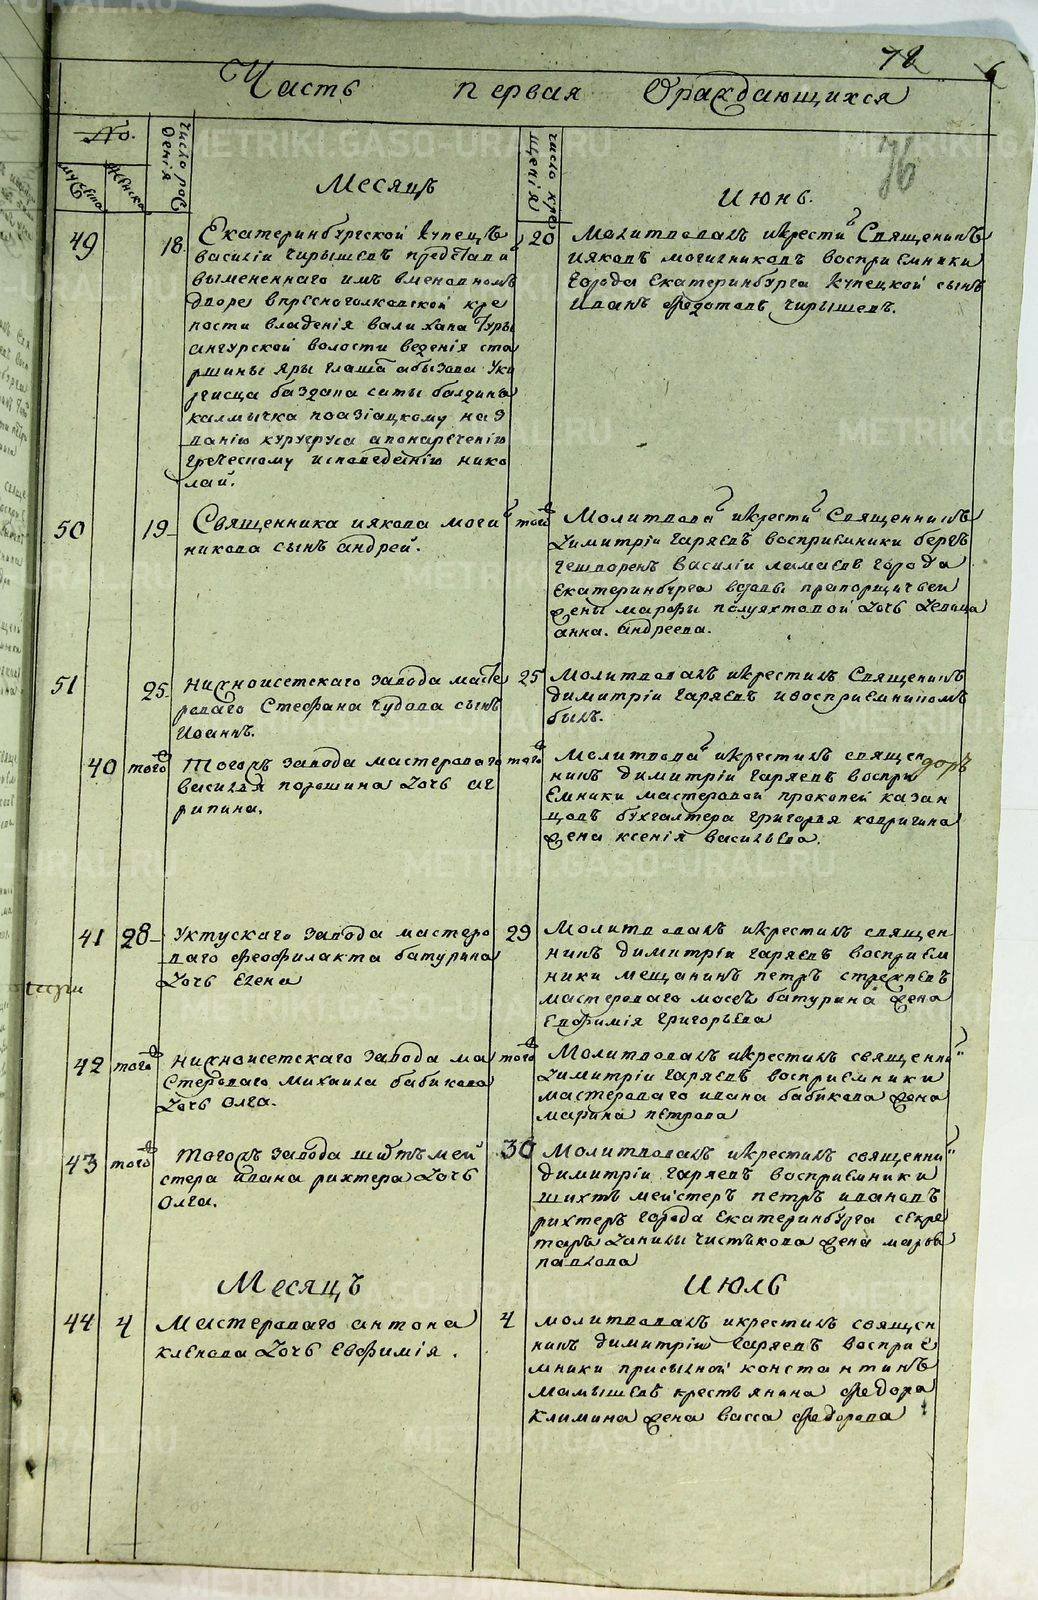 78
6
Часть первая Ораждающихся
76
No.
мужеска
женска
число рождения
число крещения
Месяцъ
Июнь.
49
18.
Екатеринбургской купецъ
василіи чирышевъ представи
вымененнаго имъ вменовномъ
дворе впресногоковской кре
пости владения вали хана
ангурской волости ведения ста
ршины яры
калмычка поазіацкому наз
ванію апонаречению
греческому исповеданію нико
лай.
20
Молитвовалъ икрести Священникъ
Ияковъ могильниковъ восприемники
города Екатеринбурга купецкой сынъ
Иванъ федотовъ чирышевъ.
50
19
Священника иякова моги
никова сынъ андрей.
того
Молитвова икрести Священникъ
Димитріи гаряевъ восприемники бергъ
гешворенъ василіи мамаевъ города
Екатеринбурга вдовы прапорщичьей
жены марфы полуяхтовой дочь девица
анна. андреева.
51
25
Нижноисетскаго завода масте
роваго Стефана чудова сынъ
Иоаннъ.
25
Молитвовалъ икрестилъ Священникъ
димитріи гаряевъ ивосприемникомъ
былъ.
40
того
Тогожъ завода мастероваго
василья порошина дочь аг
рипина.
того
Молитвова икрестилъ священ
никъ димитріи гаряевъ воспри
емники мастеровой прокопей казан
цовъ бухгалтера григорья ковригина
жена ксенія васильева.
41
28
Уктускаго завода мастеро
ваго феофилакта батурина
дочь Елена
29
Молитвовалъ икрестилъ священ
никъ димитріи гаряевъ восприем
ники мещанинъ петръ стрежневъ
мастероваго мосея батурина жена
Евфимія григорьева
42
того
Нижноисетскаго завода ма
стероваго михаила бабикова
дочь Олга.
того
Молитвовалъ икрестилъ священни
Димитріи гаряевъ восприемники
мастероваго ивана бабикова жена
марина петрова
43
того
Тогожъ завода шихтъ мей
стера ивана рихтера дочь
Олга.
30
Молитвовалъ икрестилъ священни
димитріи гаряевъ восприемники
шихтъ мейстеръ петръ ивановъ
рихтеръ города Екатеринбурга секре
таръ данилы чистякова жена марфа
павлова
Месяцъ
Июль
44
4
Мастероваго антона
кленова дочь Евфимія.
4
молитвовалъ икрестилъ священ
никъ димитріи гаряевъ воспріе
мники присыльной константинъ
мамышевъ крестьянина федора
Климина жена васса федорова
METRIKI.GASO-URAL.RU